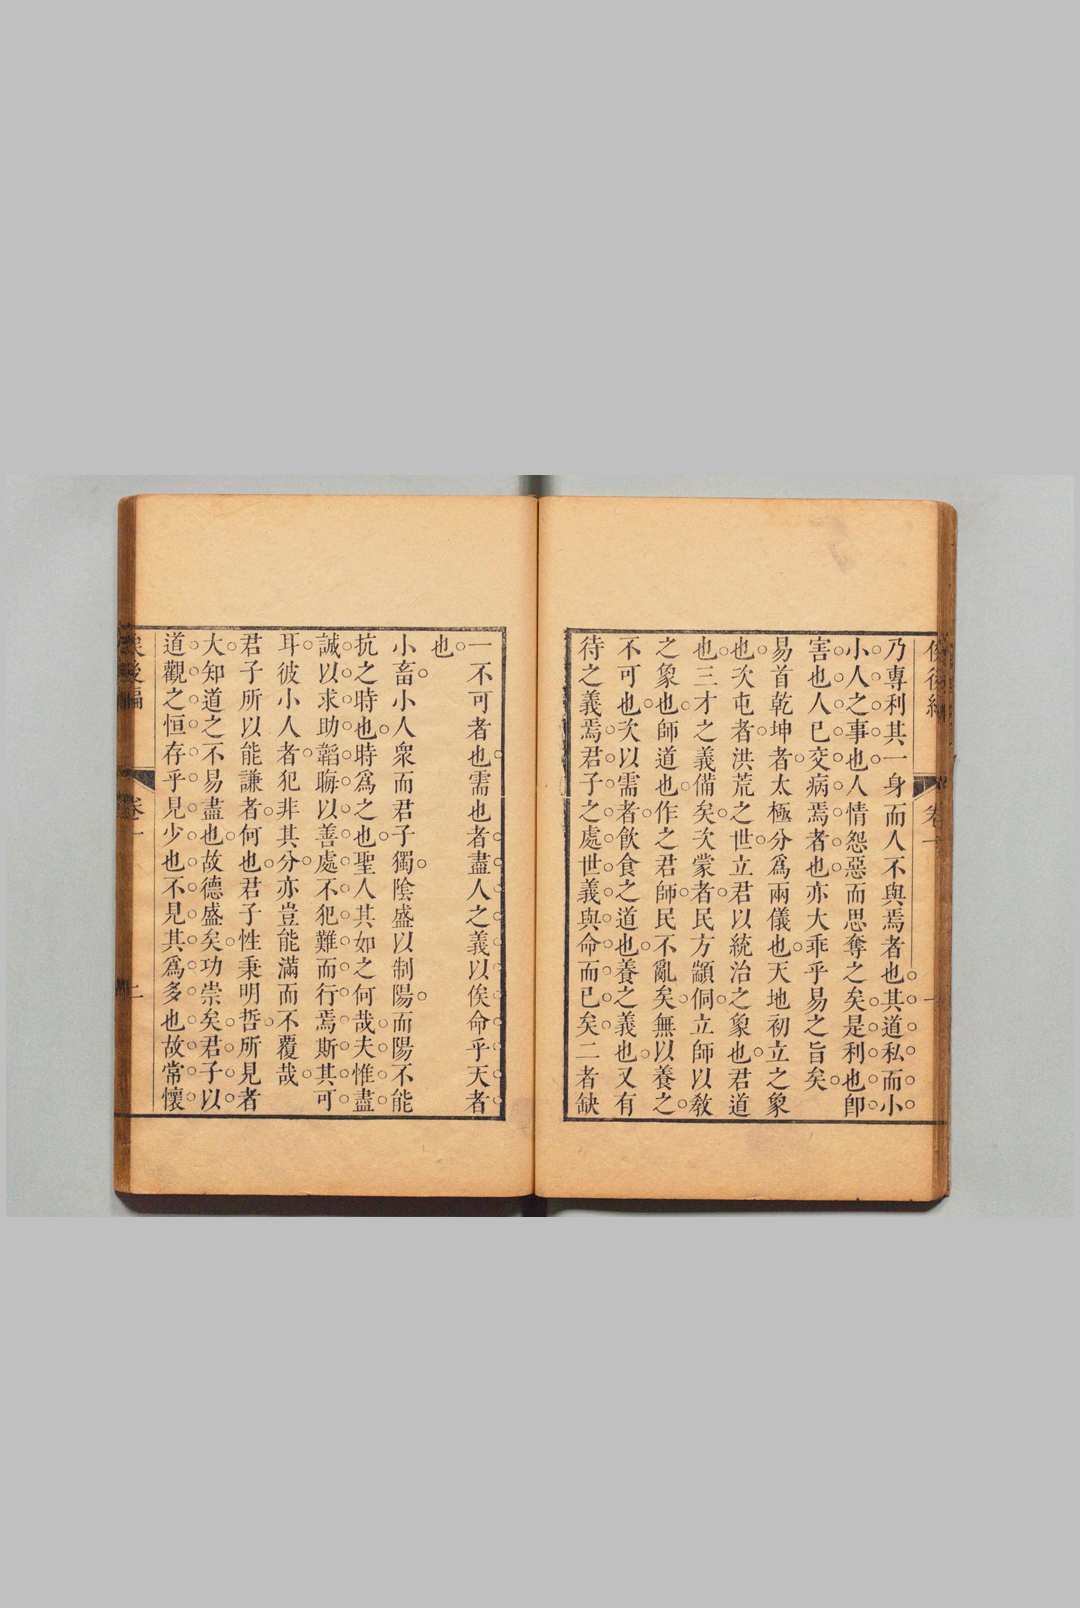 俟後編
卷一
一
乃專利其一身而人不與焉者也其道私而小
小人之事也人情怨惡而思奪之矣是利也卽
害也人已交病焉者也亦大乖乎易之旨矣
易首乾坤者太極分爲兩儀也天地初立之象
也次屯者洪荒之世立君以統治之象也君道
也三才之義備矣次蒙者民方顓侗立師以敎
之象也師道也作之君師民不亂矣無以養之
不可也次以需者飲食之道也養之義也又有
待之義焉君子之處世義與命而已矣二者缺
一不可者也需也者盡人之義以俟命乎天者
也
小畜小人衆而君子獨陰盛以制陽而陽不能
抗之時也時爲之也聖人其如之何哉夫惟盡
誠以求助韜晦以善處不犯難而行焉斯其可
耳彼小人者犯非其分亦豈能滿而不覆哉
君子所以能謙者何也君子性秉明哲所見者
大知道之不易盡也故德盛矣功崇矣君子以
道觀之恒存乎見少也不見其爲多也故常懷
俟後編
卷一
二